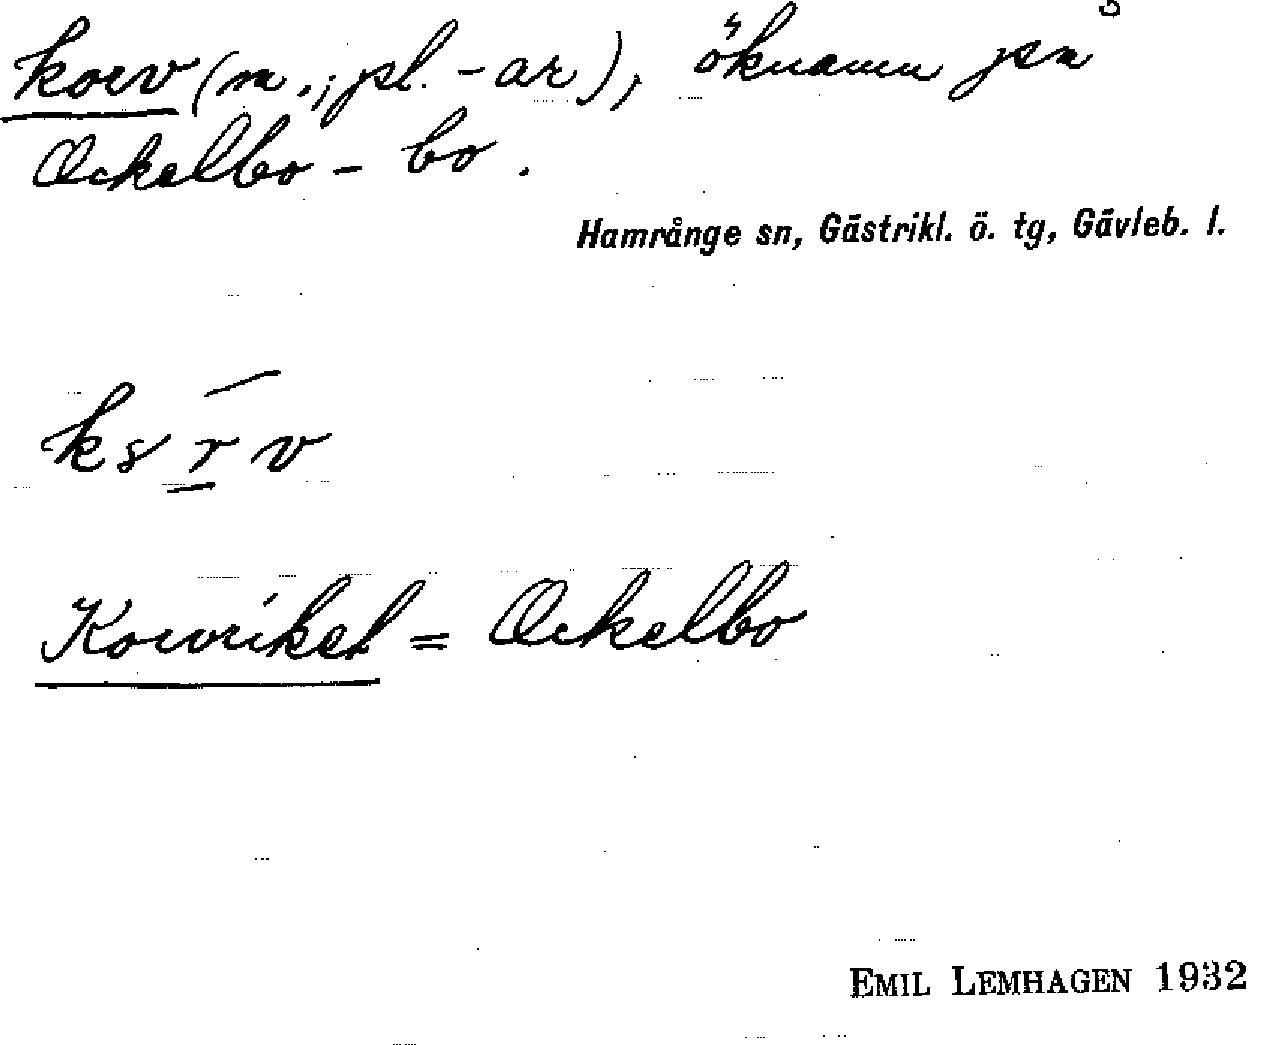 korv (m.; pl. -ar), öknamn på
Ockelbo-bo.
Hamrånge sn, Gästrikl. ö. tg, Gävleb. l.
Korvriket = Ockelbo
EMIL LEMHAGEN 1932